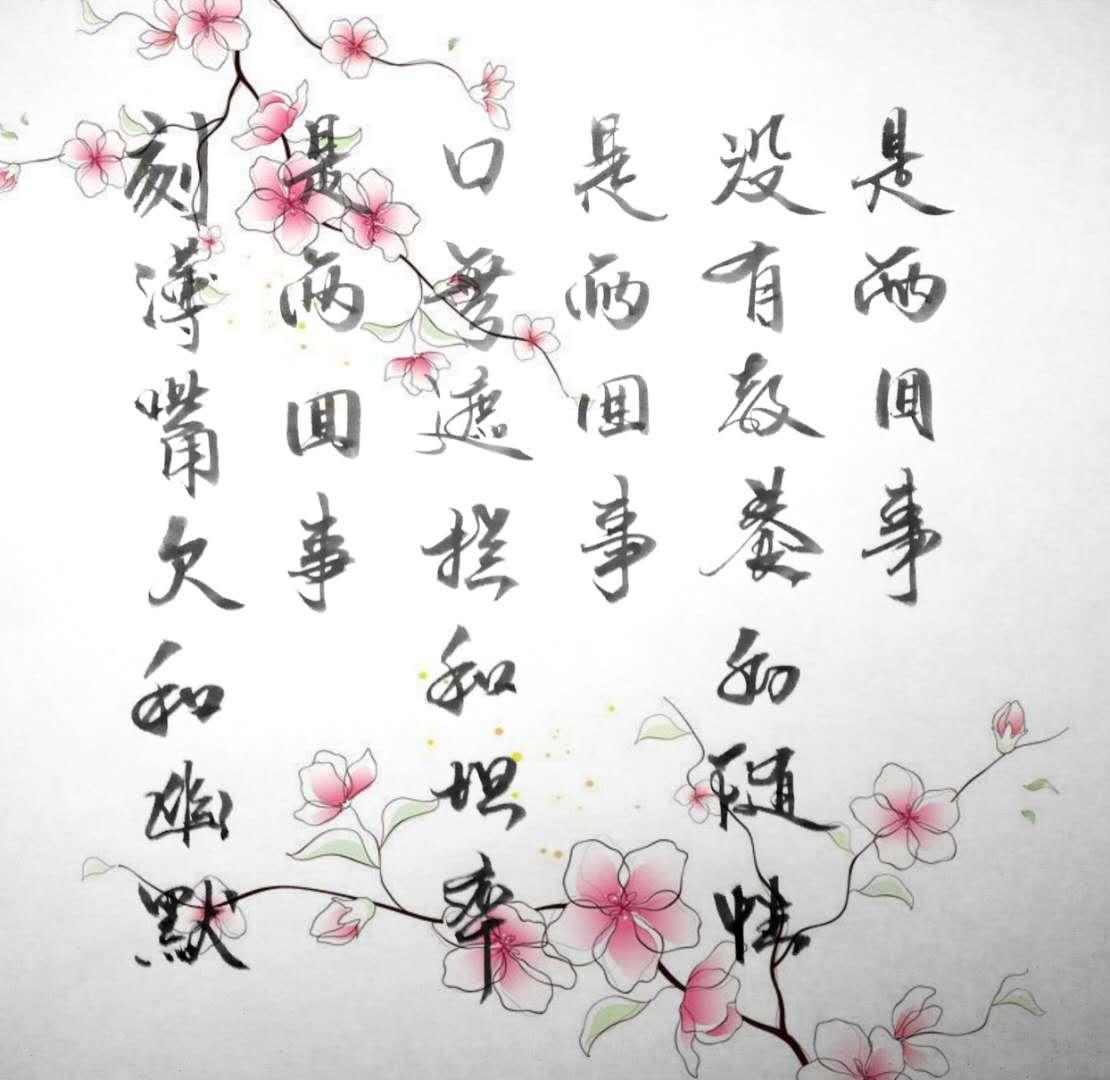 刻薄嘴欠和幽默
是两回事
口無遮拦和坦率
是两回事
没有教養和随性
是两回事